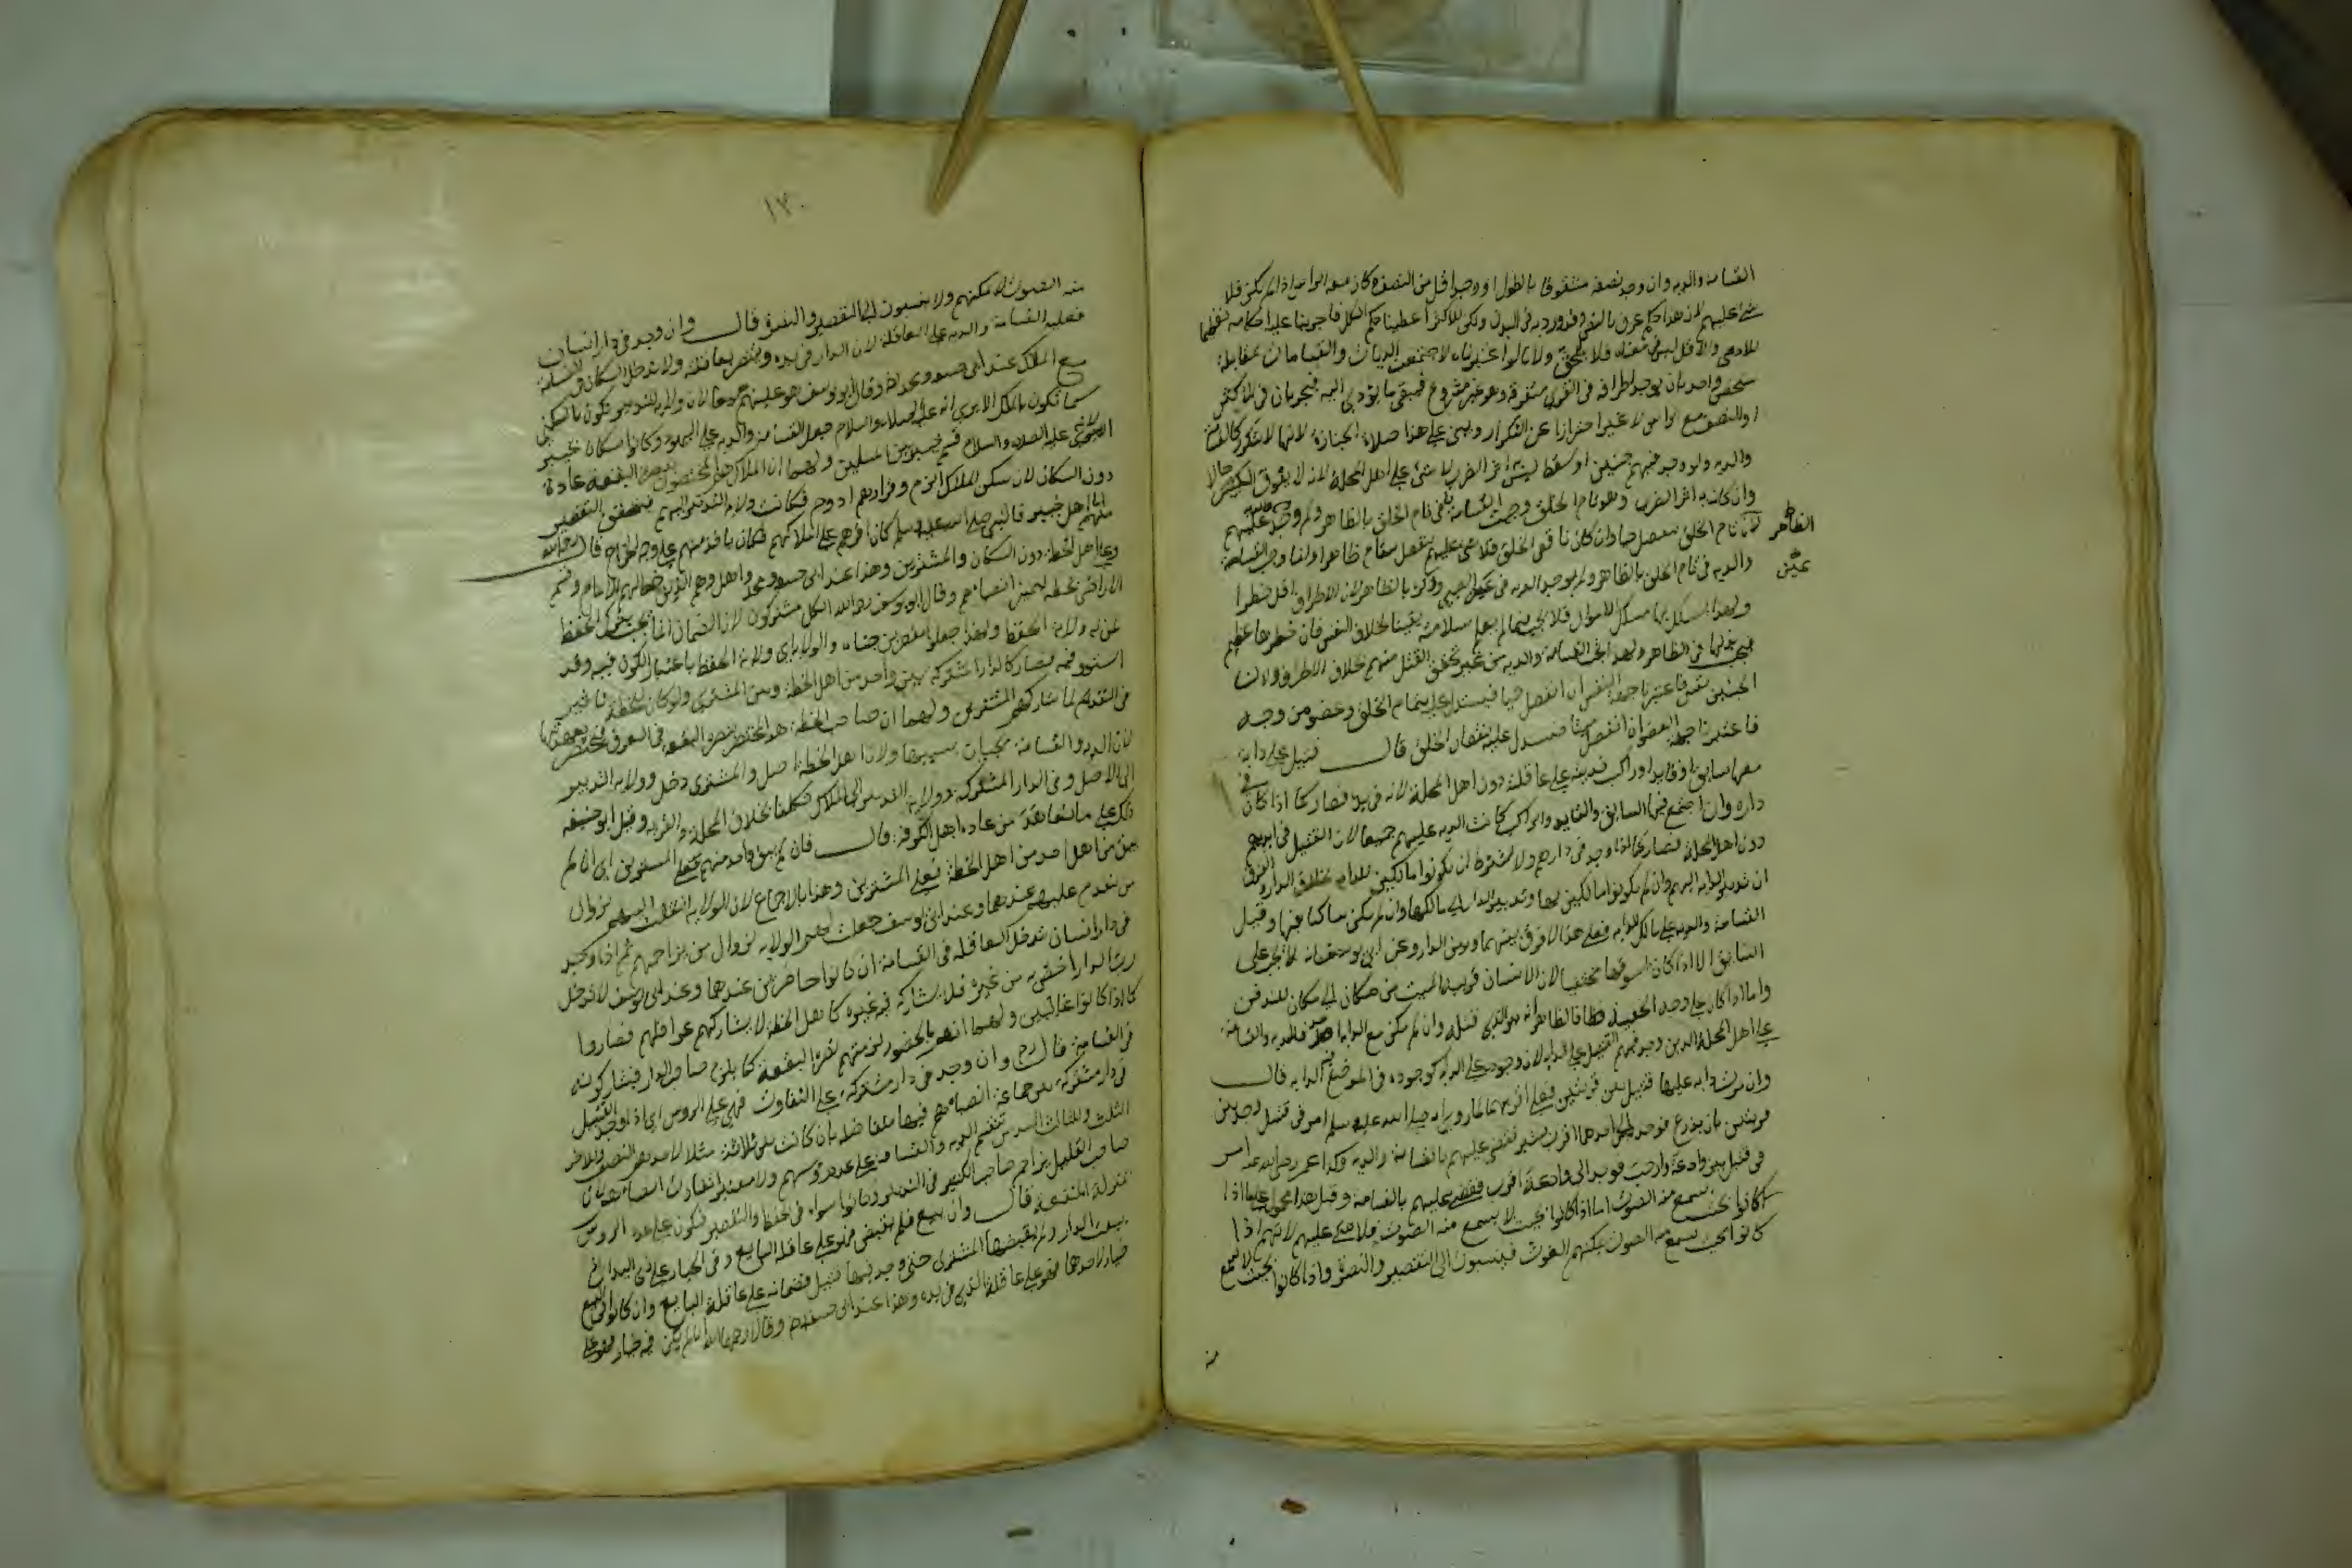 القسامة والدية وان وجد نصفه مشقوقا بالطول او وجد اقل من النصف كان معه الراس اذ لم يكن فلا
شئ عليهم لان هذا حكم عرف بالنص وقد ورد به في البدن ولكن للاكثر اعطينا حكم الكل فاجرينا عليه احكامه تعظيما
للادمي والاقل ليس في معناه فلا يلحق ولانا لو اعتبرناه لاجتمعت الديات والقسامات بمقابلة
شخص واحد بان يوجد اطرافه في القرى متفرقة وهو غير مشروع فيبقى ما يؤدي اليه فيجريان في الاكثر
او النصف مع الراس لا غير احترازا عن التكرار ويبنى على هذا صلاة الجنازة لانها لا تتكرر كالقسامة
والدية ولو وجد فيهم جنين او سقط ليس به اثر الضرب لا شئ على اهل المحلة لانه لا يفوق الكبير حالا
وان كان به اثر الضرب وهو تام الخلق وجبت القسامة
لان تام الخلق ينفصل حيا وان كان ناقص الخلق فلا شئ عليهم
الظاهر
عين
والدية في تام الخلق بالظاهر ولم يوجب الدية في عين الصبي وذكره بالظاهر لان الاطراف اقل خطرا
ولهذا يسلك بها مسلك الاموال فلا يجب فيها ما لم يعلم سلامته يقينا بخلاف النفس فان خطرها عظيم
فيجب في الظاهر ولهذا تجب القسامة والدية من غير تحقق القتل منهم بخلاف الاطراف ولان
الجنين نفس فاعتبرنا جهة النفس ان انفصل حيا فيستدل عليه بتمام الخلق وعضو من وجه
فاعتبرنا جهة العضو ان انفصل ميتا فيستدل عليه بنقصان الخلق قال قتيل على دابة
معها سايق او قايد او راكب فديته على عاقلته دون اهل المحلة لانه في يده فصار كما اذا كان في
داره وان اجتمع فيها السابق والقايد والراكب كانت الدية عليهم جميعا لان القتيل في ايديهم
دون اهل المحلة فصار كما اذا وجد في دارهم ولا يشترط ان يكونوا مالكين للدابة بخلاف الدار والفرق
ان تدبير الدابة اليهم وان لم يكونوا مالكين لها وتدبير الدار الى مالكها وان لم يكن ساكنا فيها وقيل
القسامة والدية على مالك الدابة فعلى هذا لا فرق بينهما وبين الدار وعن ابي يوسف انه لا تجب على
السايق الا اذا كان يسوقها مختفيا لان الانسان قد ينقل الميت من مكان الى مكان للدفن
واما اذا كان على وجه الخفية فالظاهر انه هو الذي قتله وان لم يكن مع الدابة احد فالدية والقسامة
على اهل المحلة الذين وجد فيهم القتيل على الدابة لان وجوده على الدابة كوجوده في الموضع الذي فيه الدابة قال
وان مرت دابة عليها قتيل بين قريتين فعلى اقربهما لما روي انه صلى الله عليه وسلم امر في قتيل وجد بين
قريتين بان يذرع فوجد الى احدهما اقرب بشبر فقضى عليهم بالقسامة والدية وكذا عمر رضي الله عنه امر
في قتيل بين وادعة وارحب فوجد الى وادعة اقرب فقضى عليهم بالقسامة وقيل هذا محمول على ما اذا
كانوا بحيث يسمع منه الصوت اما اذا كانوا بحيث لا يسمع منه الصوت فلا شئ عليهم لانهم اذا
كانوا بحيث يسمع منه الصوت يمكنهم الغوث فينسبون الى التقصير والنصرة واذا كانوا بحيث لا يسمع
منه
١٣٠
منه الصوت لا يمكنهم ولا ينسبون الى التقصير والنصرة قال وان وجد في دار انسان
فعليه القسامة والدية على العاقلة لان الدار في يده ونصرته بعاقلته ولا تدخل السكان في القسامة
مع الملاك عند ابي حنيفة ومحمد وقال ابو يوسف هو عليهم جميعا لان ولاية التدبير تكون بالسكنى
كما تكون بالملك الا يرى انه عليه الصلاة والسلام جعل القسامة والدية على اليهود وكانوا سكان خيبر
لانه عليه الصلاة والسلام قسم خيبر بين المسلمين ولهما ان الملاك هم المختصون بنصرة البقعة عادة
دون السكان لان سكنى الملاك الزم وقرارهم ادوم فكانت ولاية التدبير اليهم فيتحقق التقصير
منهم اما اهل خيبر فالنبي صلى الله عليه وسلم كان اقرهم على املاكهم فكان ياخذ منهم على وجه الخراج قال رحمه الله
وعلى اهل الخطة دون السكان والمشترين وهذا عند ابي حنيفة ومحمد واهل الخطة هم الذين خط لهم الامام وقسم
الاراضي بخطه ليتميز انصباؤهم وقال ابو يوسف رحمه الله الكل مشتركون لان الضمان انما يجب بترك الحفظ
ممن له ولاية الحفظ ولهذا جعلوا مقصرين جناة والولاية باعتبار الكون فيه وقد
استووا فيه فصار كالدار المشتركة بين واحد من اهل الخطة وبين المشتري ولو كان للخطة تاثير
في التقديم لما شاركهم المشترون ولهما ان صاحب الخطة هو المختص بنصرة البقعة في العرف
لان الدية والقسامة تجبان بسببها ولان اهل الخطة اصل والمشتري دخيل وولاية التدبير
الى الاصل وفي الدار المشتركة ولاية التدبير الى الملاك فكلفا بخلاف المحلة والقرية وقيل ابو حنيفة
ذلك على ما شاهد من عادة اهل الكوفة قال فان لم يبق واحد منهم فعلى المشترين اي ان لم
يبق من اهل احد من اهل الخطة فعلى المشترين وهذا بالاجماع لان الولاية انتقلت اليهم بزوال
من يتقدم عليهم عندهما وعند ابي يوسف جعلت لهم الولاية لزوال من يزاحمهم ثم اذا وجد
في دار انسان تدخل العاقلة في القسامة ان كانوا حاضرين عندهما وعند ابي يوسف لا تدخل
رب الدار اخص به من غيره فلا يشاركه فيه غيره كاهل الخطة لا يشاركهم عواقلهم فصاروا
كما اذا كانوا غايبين ولهما انهم بالحضور لزمتهم نصرة البقعة كما يلزم صاحب الدار فيشاركونه
في القسامة قال رح وان وجد في دار مشتركة على التفاوت فهي على الروس اي اذا وجد القتيل
في دار مشتركة بين جماعة انصباؤهم فيها متفاضلة بان كانت بين ثلاثة مثلا لاحدهم النصف وللاخر
الثلث وللثالث السدس تنقسم الدية والقسامة على عدد روسهم ولا معتبر انصباؤهم لان
صاحب القليل يزاحم صاحب الكثير في التدبير وكانوا سواء في الحفظ والتقصير فيكون على عدد الروس
بمنزلة الشفعة قال وان بيع فلم يقبض فهو على عاقلة البايع وفي الخيار على ذي اليد اي ان
بيعت الدار ولم يقبضها المشتري حتى وجد فيها قتيل فضمانه على عاقلة البايع وان كان في البيع
خيار لاحدهما فهو على عاقلة الذي في يده وهذا عند ابي حنيفة وقالا رحمهما الله ان لم يكن فيه خيار فهو على